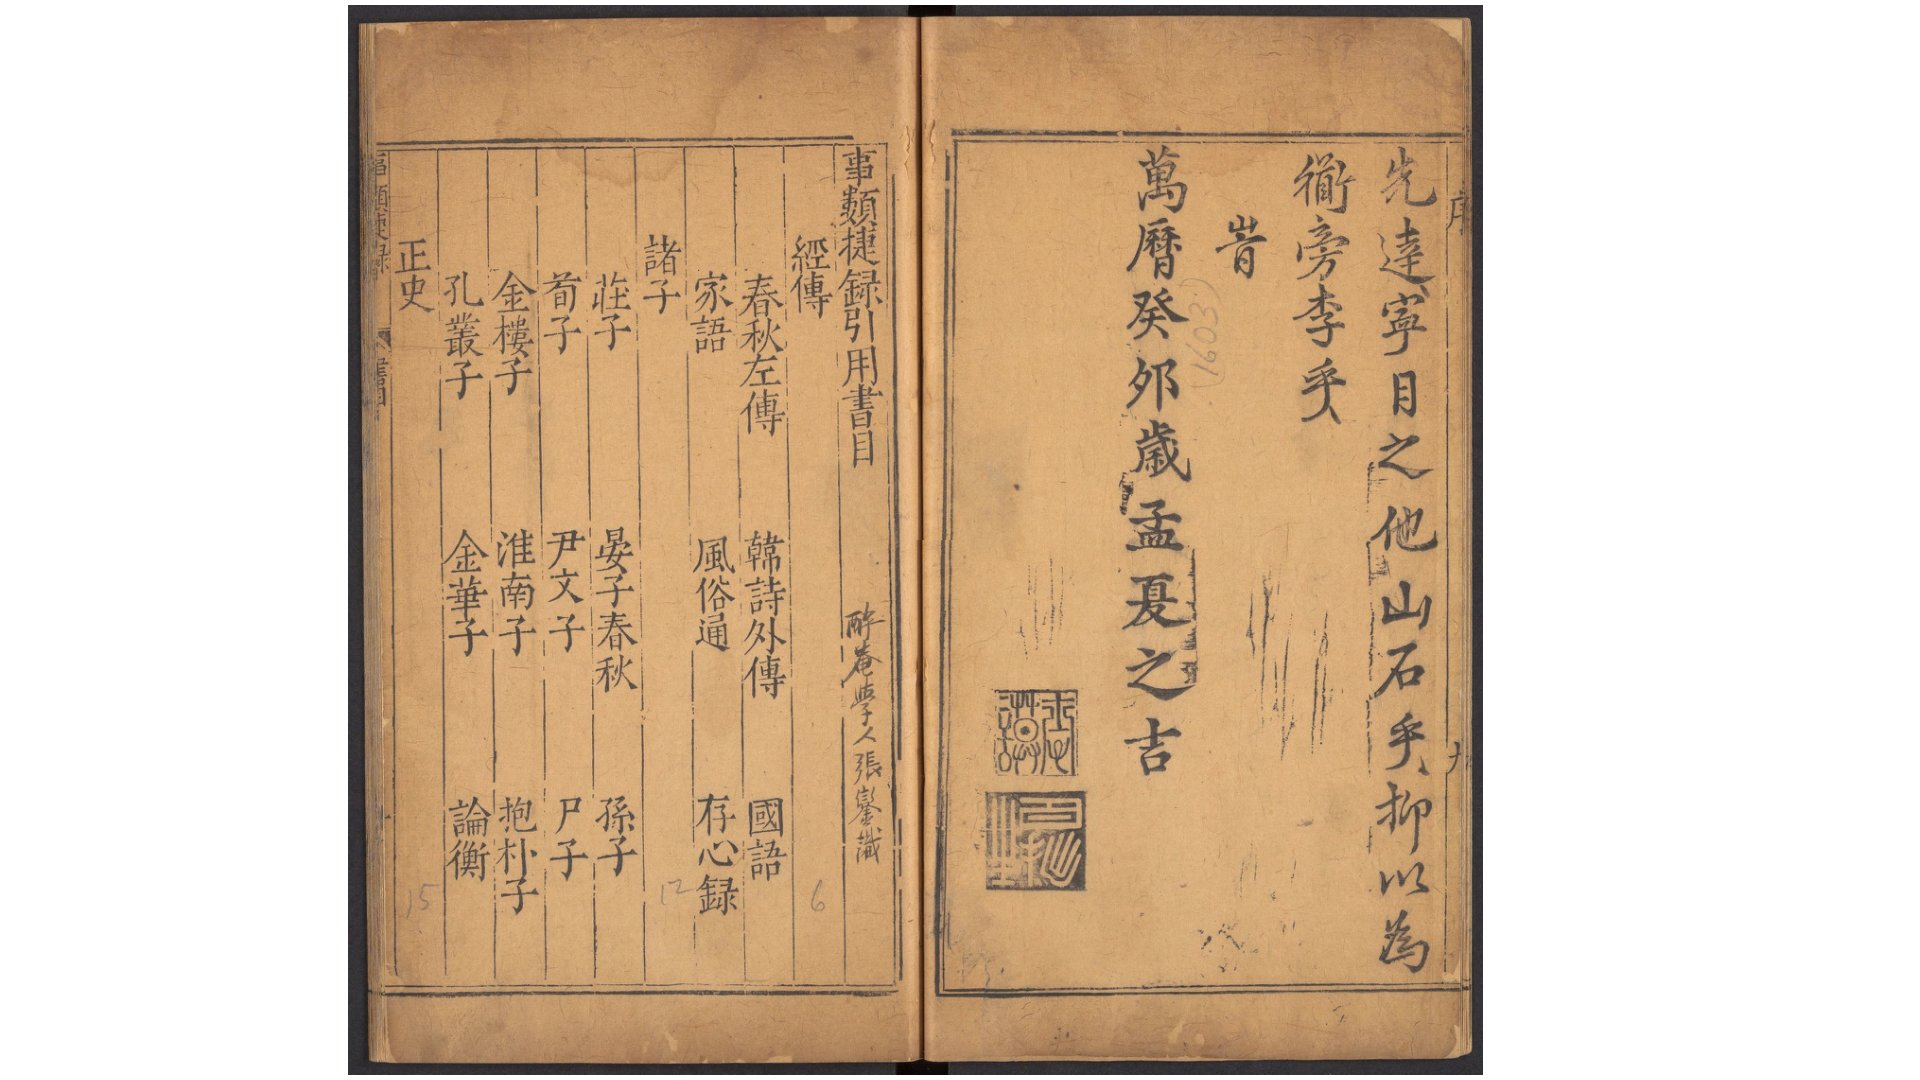 序
先達寧目之他山石乎抑以為
衜旁李乎
旹
萬曆癸夘歲孟夏之吉
(1603)
事類捷録引用書目
經傳
6
春秋左傳 韓詩外傳 國語
家語 風俗通 存心録
諸子
12
莊子 晏子春秋 孫子
荀子 尹文子 尸子
金樓子 淮南子 抱朴子
孔叢子 金華子 論衡
正史
15
事類捷録
書目